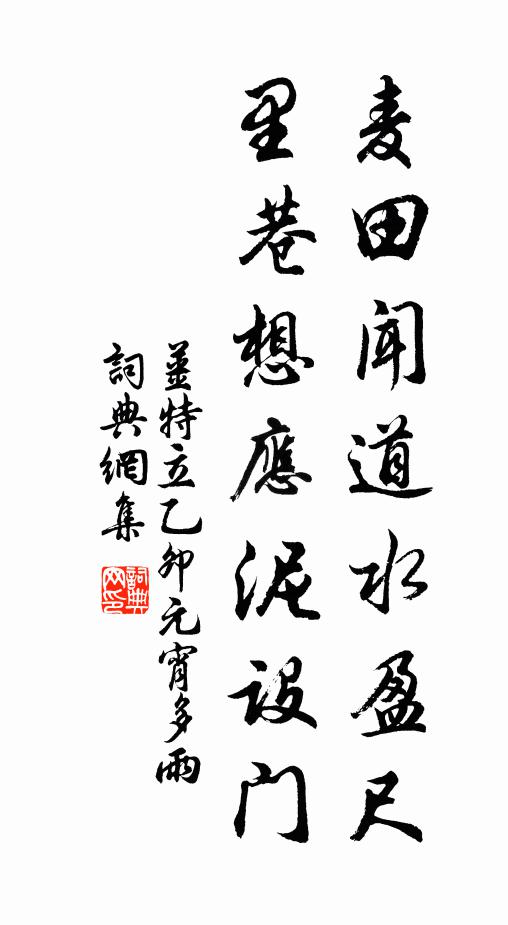 麦田闻道水盈尺
里巷想應泥设门
薑特立乙卯元宵多雨
詞典網集
詞典
网印